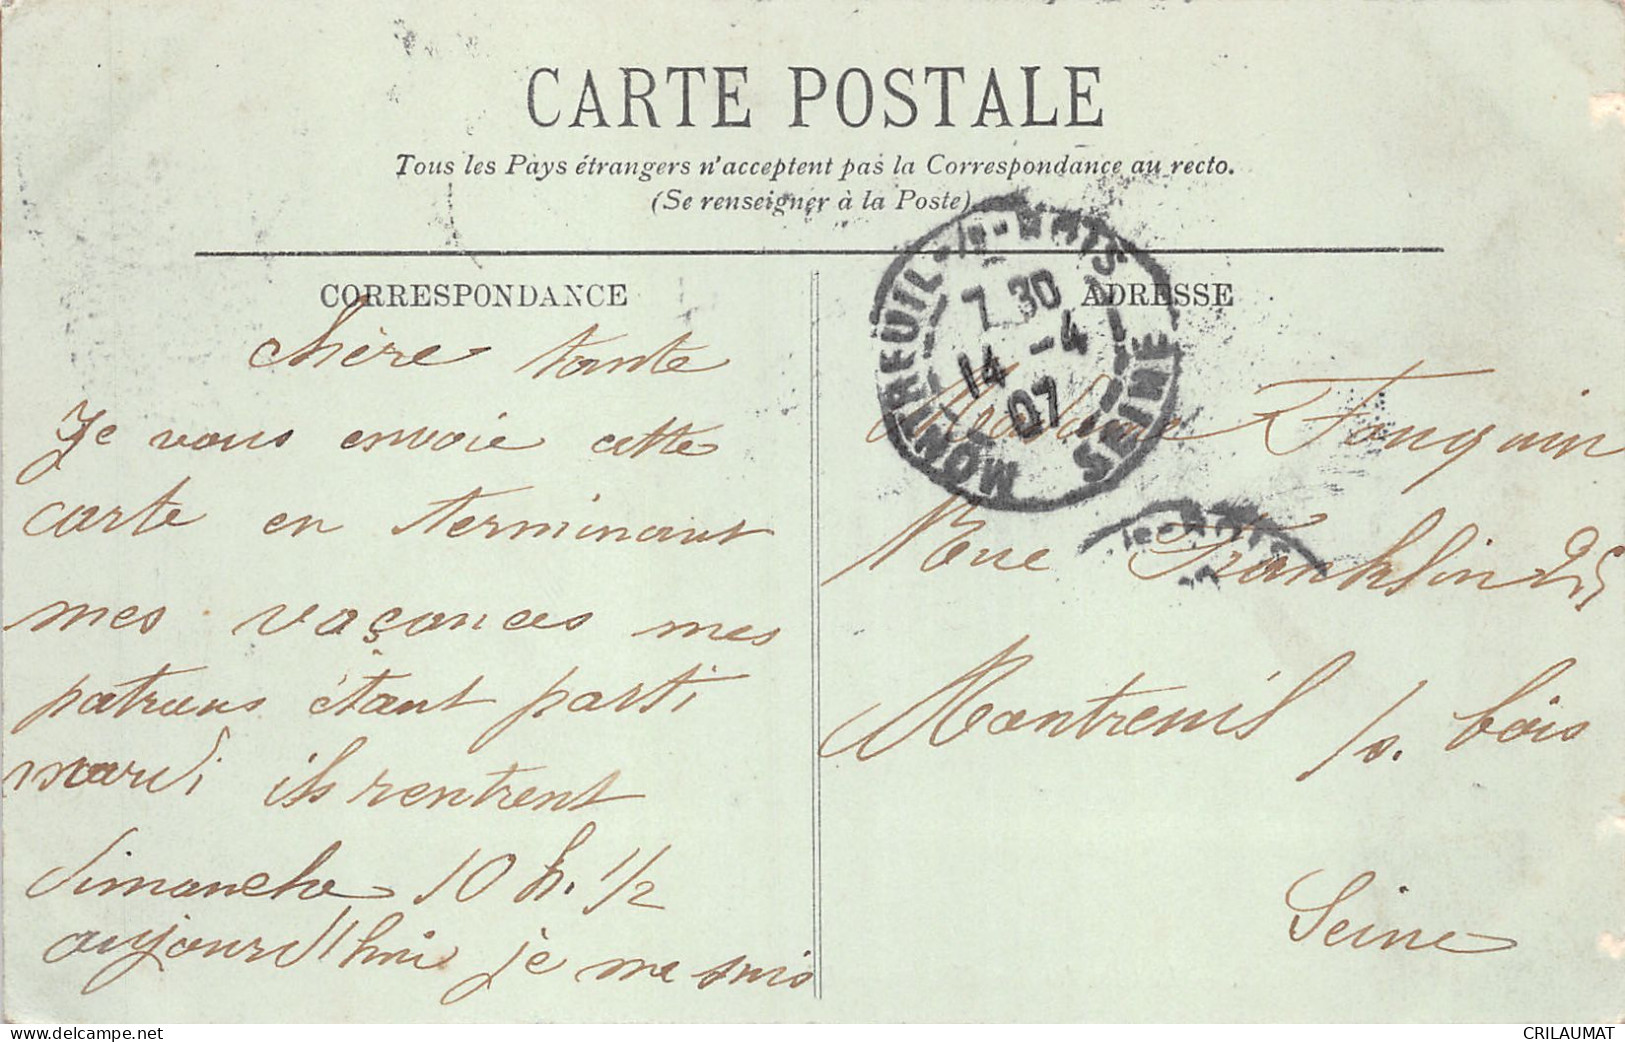 CARTE POSTALE
Tous les Pays étrangers n'acceptent pas la Correspondance au recto.
(Se renseigner à la Poste)
CORRESPONDANCE
chère tante
Je vous envoie cette
carte en terminant
mes vaçances mes
patrons étant parti
mardi ils rentrent
dimanche 10 h. 1/2
aujourd'hui je me suis
ADRESSE
MONTREUIL-s-BOIS
7 30
14 -4
07
SEINE
Madame Fouquin
Rue Franklin 25
Montreuil s/s. bois
Seine
www.delcampe.net
CRILAUMAT